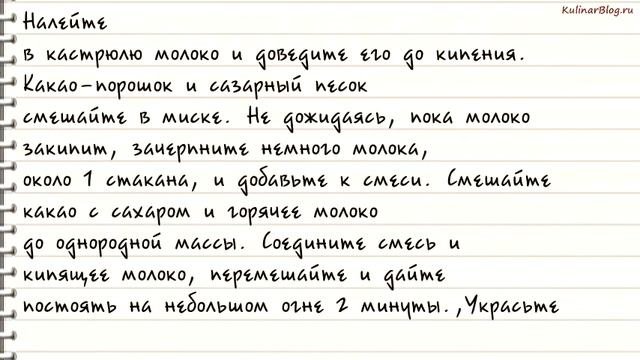 KulinarBlog.ru
Налейте
в кастрюлю молоко и доведите его до кипения.
Какао-порошок и сазарный песок
смешайте в миске. Не дожидаясь, пока молоко
закипит, зачерпните немного молока,
около 1 стакана, и добавьте к смеси. Смешайте
какао с сахаром и горячее молоко
до однородной массы. Соедините смесь и
кипящее молоко, перемешайте и дайте
постоять на небольшом огне 2 минуты.,Украсьте